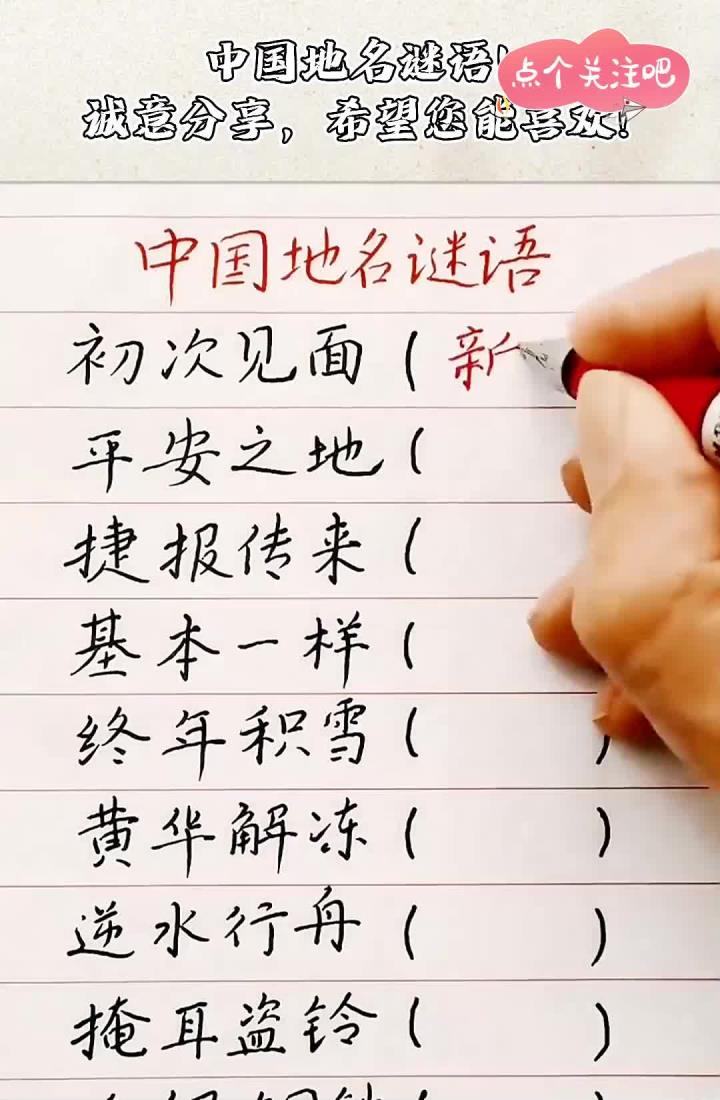 中国地名谜语!
点个关注吧
诚意分享，希望您能喜欢!
中国地名谜语
初次见面 ( 新
平安之地 (
捷报传来 (
基本一样 (
终年积雪 ( )
黄华解冻 ( )
逆水行舟 ( )
掩耳盗铃 ( )